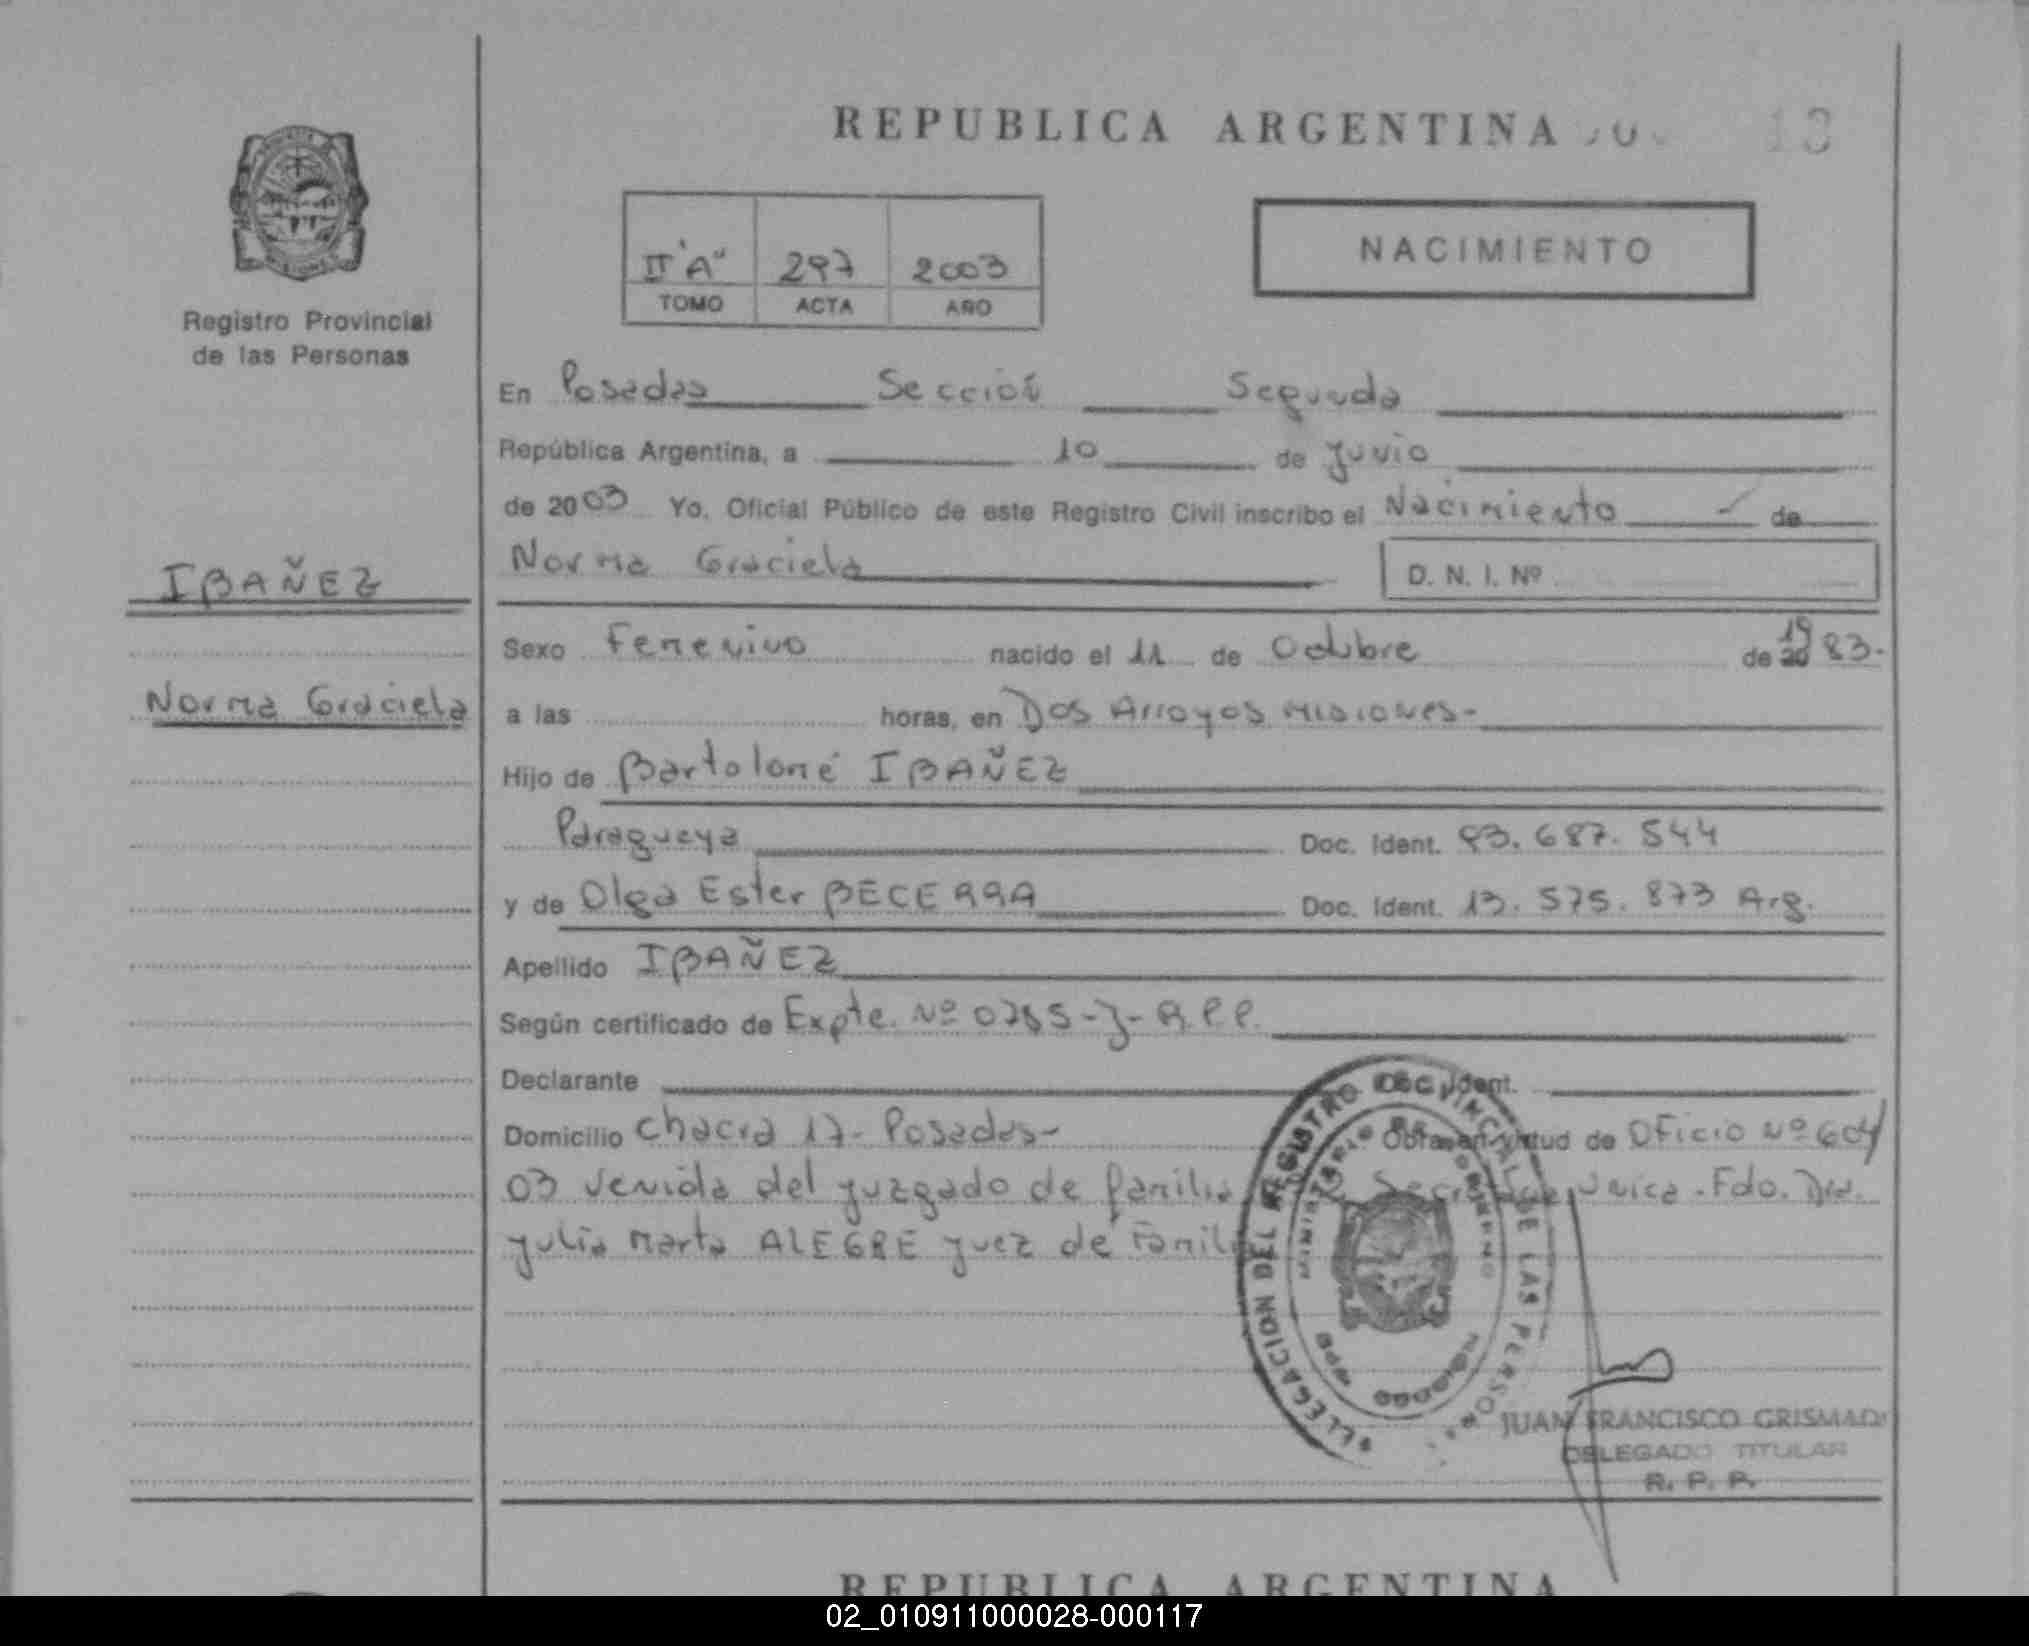 REPUBLICA ARGENTINA
13
Registro Provincial
de las Personas
II "A" 297 2003
TOMO ACTA AÑO
NACIMIENTO
En Posadas Sección Segunda
República Argentina, a 10 de Junio
de 2003 Yo, Oficial Público de este Registro Civil inscribo el Nacimiento de
Norma Graciela D. N. I. Nº
IBAÑEZ
Norma Graciela
Sexo Femenino nacido el 11 de Octubre de 20 19 83.-
a las horas, en Dos Arroyos Misiones-
Hijo de Bartolomé IBAÑEZ
Paragueya Doc. Ident. 93.687.544
y de Olga Ester BECERRA Doc. Ident. 13.575.873 Arg.
Apellido IBAÑEZ
Según certificado de Expte. Nº J-R.P.P.
Declarante Doc. Ident.
Domicilio Chacra 17- Posadas- Obra en virtud de Oficio Nº 604/
03 venida del Juzgado de Familia Única. Fdo. Dra.
Julia Marta ALEGRE Juez de Famil
DELEGACION DEL REGISTRO PROVINCIAL DE LAS PERSON
MINISTERIO DE GOBIERNO
JUAN FRANCISCO GRISMADI
DELEGADO TITULAR
R. P. P.
REPUBLICA ARGENTINA
02_010911000028-000117